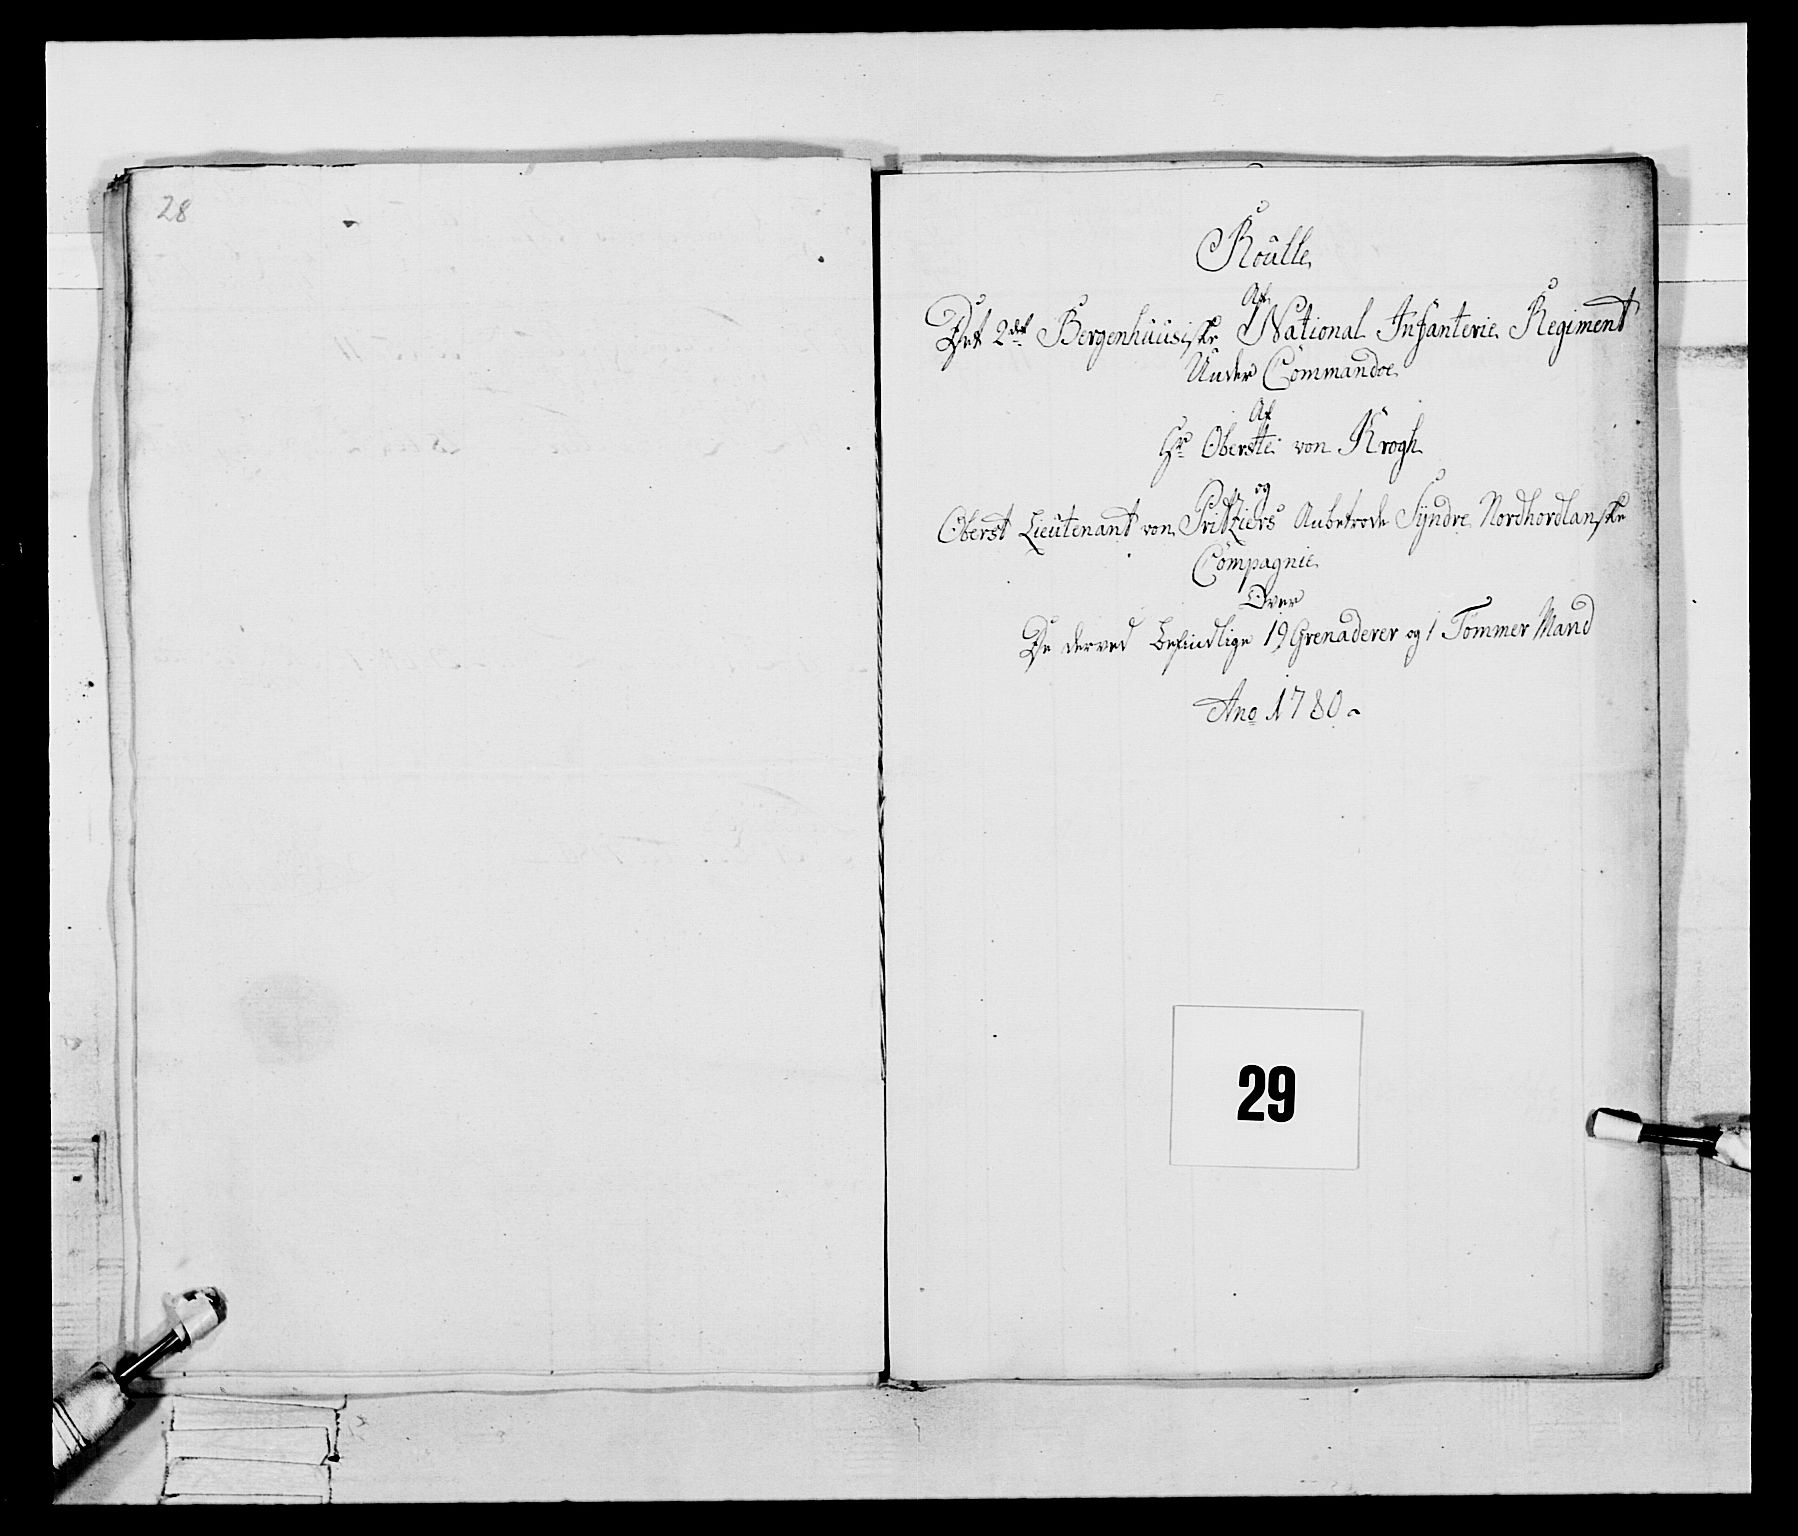 28
Roulle
Af
Det 2det Bergenhuusiske National Infanterie Regiment
Under Commandoe
Af
Hr Oberste von Krogh
og
Oberst Lieutenant von Pritziers Anbetrode Syndre Nordhordlanske
Compagnie
Over
De derved befindlige 19 Grenaderer og 1 Tømmer Mand
Ano 1780
29